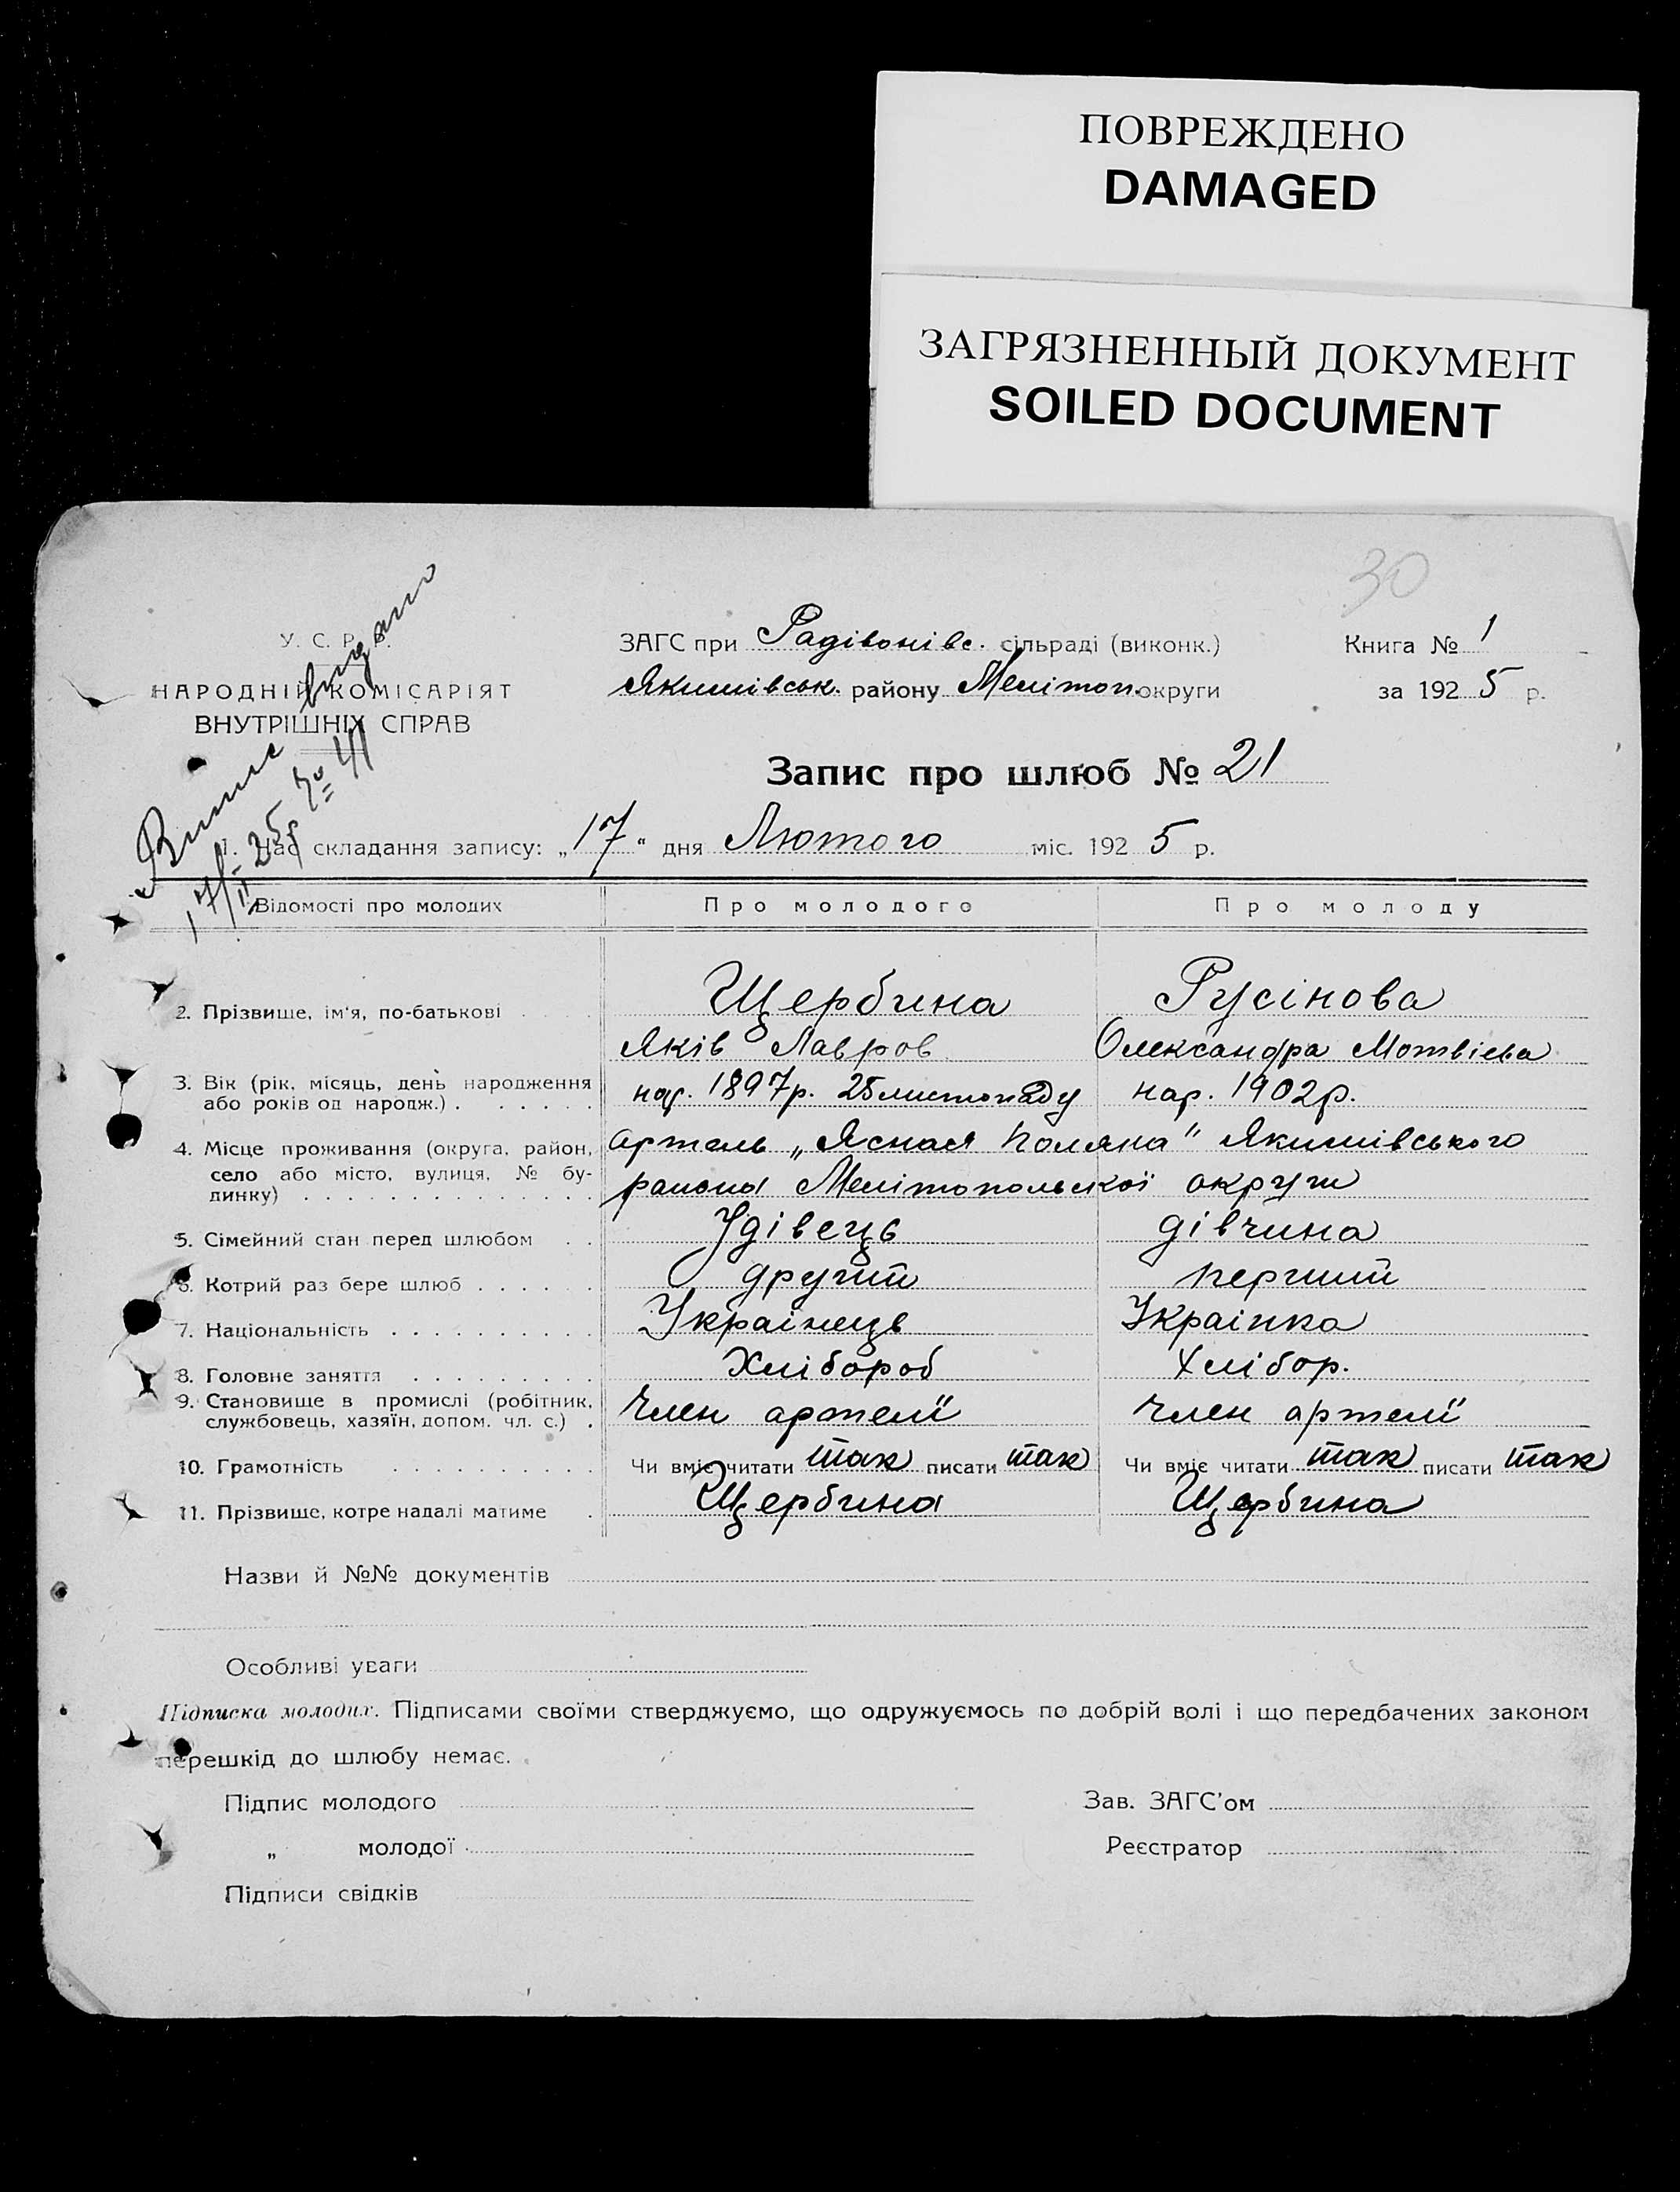 ПОВРЕЖДЕНО
DAMAGED
ЗАГРЯЗНЕННЫЙ ДОКУМЕНТ
SOILED DOCUMENT
30
У. С. Р. Р.
НАРОДНІЙ КОМІСАРІЯТ
ВНУТРІШНІХ СПРАВ
Випис видано
17/II 25р № 41
ЗАГС при Радівонівс. сільраді (виконк.)
Якимівськ. району Мелітоп. округи
Книга № 1
за 1925 р.
Запис про шлюб № 21
1. Час складання запису: „17“ дня Лютого міс. 1925 р.
Відомості про молодих Про молодого Про молоду
2. Прізвище, ім'я, по-батькові Щербина Русінова
Яків Лавров Олександра Мотвієва
3. Вік (рік, місяць, день народження
або років од народж.) нар. 1897р. 25 листопаду нар. 1902р.
4. Місце проживання (округа, район, артель „Ясная Поляна" Якимівського
село або місто, вулиця, № бу-
динку) района Мелітопольскої округи
5. Сімейний стан перед шлюбом Удівець дівчина
6. Котрий раз бере шлюб другий перший
7. Національність Українець Українка
8. Головне заняття Хлібороб хлібор.
9. Становище в промислі (робітник,
службовець, хазяїн, допом. чл. с.) Член артелі Член артелі
10. Грамотність Чи вміє читати так писати так Чи вміє читати так писати так
11. Прізвище, котре надалі матиме Щербина Щербина
Назви й №№ документів
Особливі уваги
Підписка молодих. Підписами своїми стверджуємо, що одружуємось по добрій волі і що передбачених законом
перешкід до шлюбу немає.
Підпис молодого Зав. ЗАГС'ом
„ молодої Реєстратор
Підписи свідків